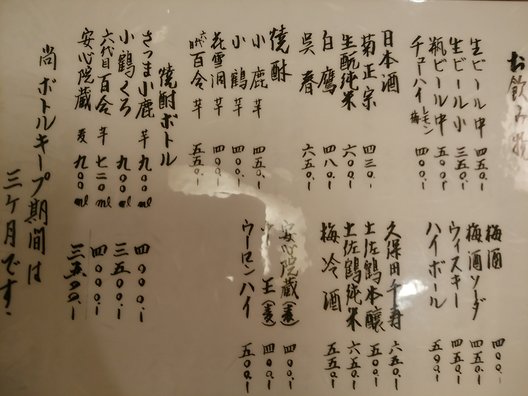 お飲み物
生ビール中 四五〇.ー
生ビール小 三五〇.ー
瓶ビール中 五〇〇.ー
チューハイ レモン 梅 四〇〇.ー
日本酒
菊正宗 四三〇.
生酛純米 六〇〇.ー
白鷹 四八〇.ー
呉春 六五〇.ー
焼酎
小鹿 芋 四五〇.ー
小鶴 芋 四〇〇.ー
花雪洞 芋 四〇〇.ー
六代目百合 芋 五五〇.ー
焼酎ボトル
さつま小鹿 芋 九〇〇ml 四〇〇〇.ー
小鶴くろ 九〇〇ml 三五〇〇.ー
六代目百合 芋 七二〇ml 四〇〇〇.ー
安心院蔵 麦 九〇〇ml 三五〇〇.ー
尚ボトルキープ期間は
三ヶ月です.
梅酒 四〇〇.
梅酒ソーダ 四五〇.ー
ウィスキー 四五〇.ー
ハイボール 五〇〇.ー
久保田千寿 六五〇.ー
土佐鶴本醸 五〇〇.ー
土佐鶴純米 五五〇.ー
梅冷酒 五五〇.ー
安心院蔵(麦) 四〇〇.ー
王(麦) 四〇〇.ー
ウーロンハイ 五〇〇.ー